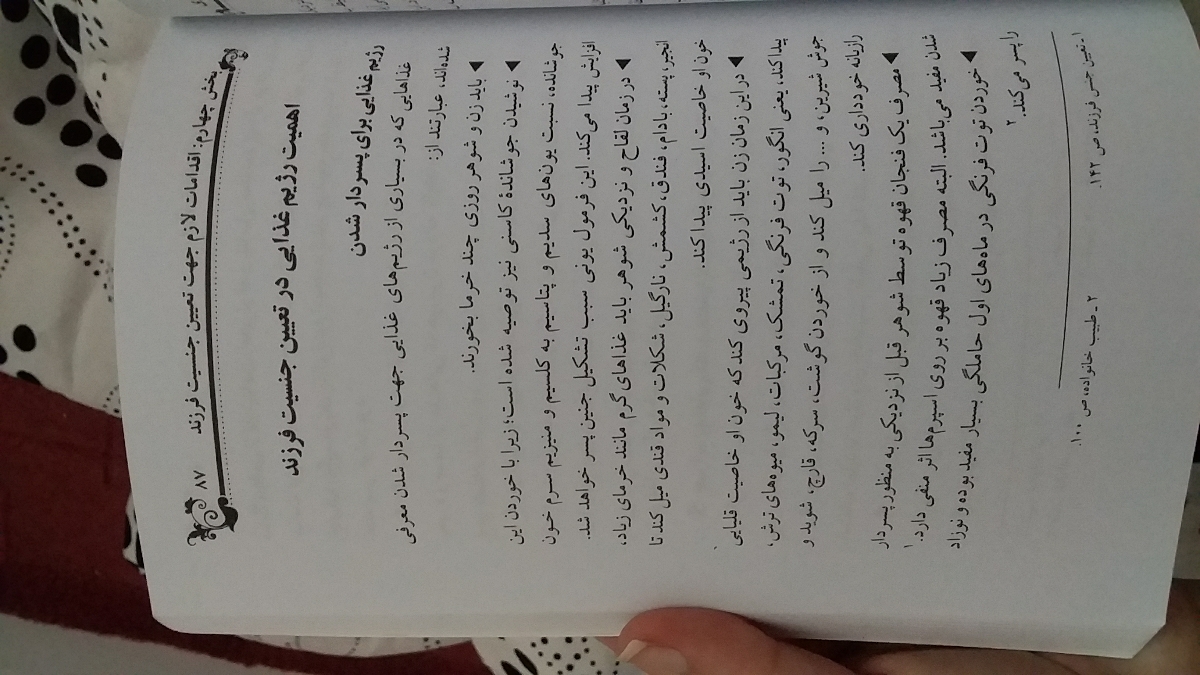 بخش چهارم: اقدامات لازم جهت تعیین جنسیت فرزند
۸۷
اهمیت رژیم غذایی در تعیین جنسیت فرزند
رژیم غذایی برای پسردار شدن
غذاهایی که در بسیاری از رژیم‌های غذایی جهت پسردار شدن معرفی
شده‌اند، عبارتند از:
◄ باید زن و شوهر روزی چند خرما بخورند.
◄ نوشیدن جوشاندهٔ کاسنی نیز توصیه شده است؛ زیرا با خوردن این
جوشانده، نسبت یون‌های سدیم و پتاسیم به کلسیم و منیزیم سرم خون
افزایش پیدا می‌کند. این فرمول یونی سبب تشکیل جنین پسر خواهد شد.
◄ در زمان لقاح و نزدیکی شوهر باید غذاهای گرم مانند خرمای زیاد،
انجیر، پسته، بادام، فندق، کشمش، نارگیل، شکلات و مواد قندی میل کند تا
خون او خاصیت اسیدی پیدا کند.
◄ در این زمان زن باید از رژیمی پیروی کند که خون او خاصیت قلیایی
پیدا کند، یعنی انگور، توت فرنگی، تمشک، مرکبات، لیمو، میوه‌های ترش،
جوش شیرین، و ... را میل کند و از خوردن گوشت، سرکه، قارچ، شوید و
رازیانه خودداری کند. ۱
◄ مصرف یک فنجان قهوه توسط شوهر قبل از نزدیکی به منظور پسردار
شدن مفید می‌باشد. البته مصرف زیاد قهوه بر روی اسپرم‌ها اثر منفی دارد. ۱
◄ خوردن توت فرنگی در ماه‌های اول حاملگی بسیار مفید بوده و نوزاد
را پسر می‌کند. ۲
۱ـ تعیین جنس فرزند، ص ۱۴۳.
۲ـ طبیب خانواده، ص ۱۰۰.